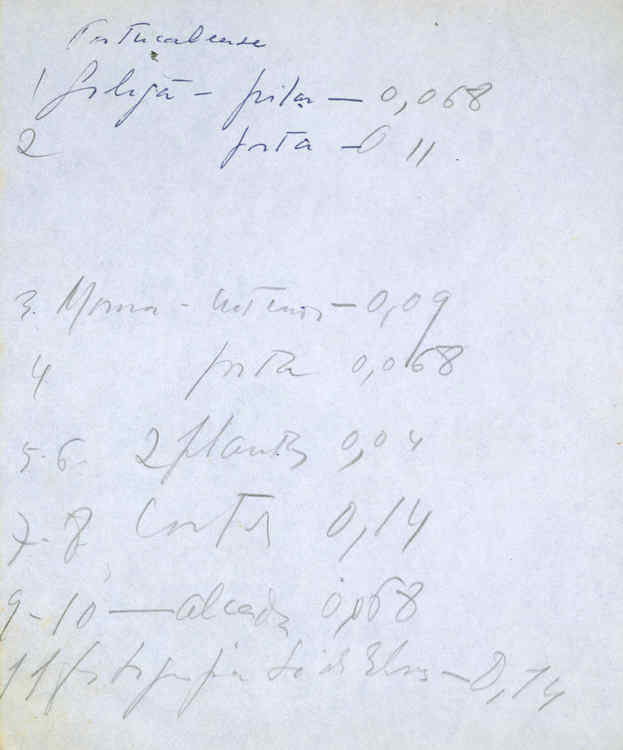 Portucalense
1 Golegã - pilar - 0,068
2 porta - 0 11
3. Moura - interior - 0,09
4 porta 0,068
5-6. 2 plantas 0,04
7-8. Cortes 0,14
9-10 — alçada 0,068
11 fotografia Sé de Elvas - 0,14